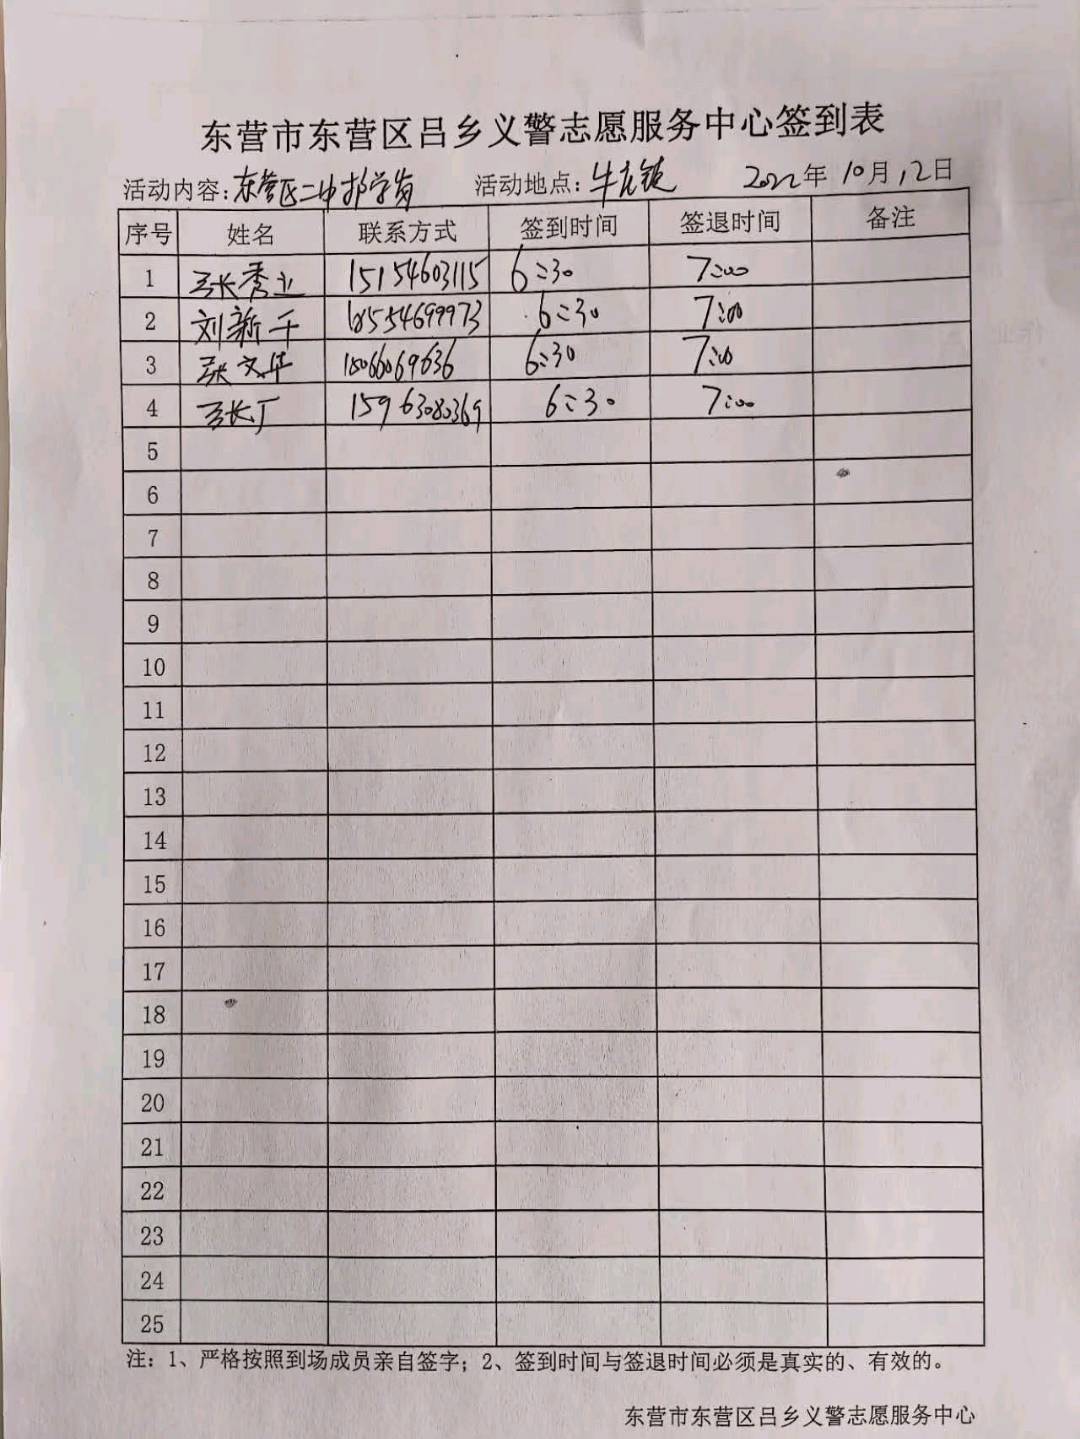 东营市东营区吕乡义警志愿服务中心签到表
活动内容:东营区二中护学岗 活动地点:牛庄镇 2022年10月12日
序号 姓名 联系方式 签到时间 签退时间 备注
1 张秀业 15154603115 6:30 7:00
2 刘新千 6:30 7:00
3 张文华 6:30 7:00
4 张厂 15963080369 6:30 7:00
5
6
7
8
9
10
11
12
13
14
15
16
17
18
19
20
21
22
23
24
25
注：1、严格按照到场成员亲自签字；2、签到时间与签退时间必须是真实的、有效的。
东营市东营区吕乡义警志愿服务中心